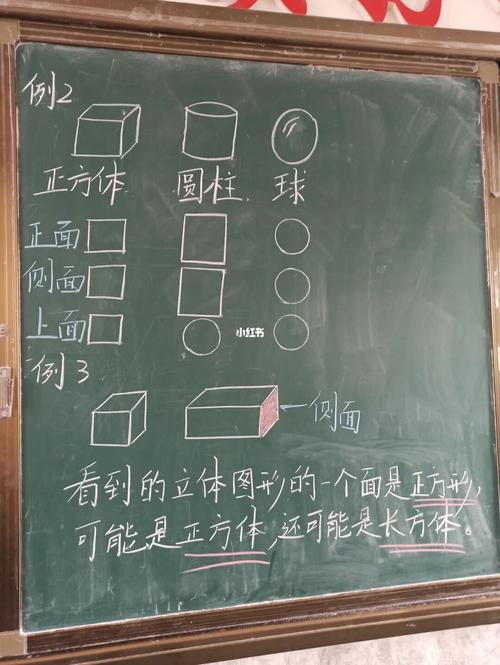 例2
正方体 圆柱 球
正面
侧面
上面
小红书
例3
侧面
看到的立体图形的一个面是正方形,
可能是正方体,还可能是长方体。